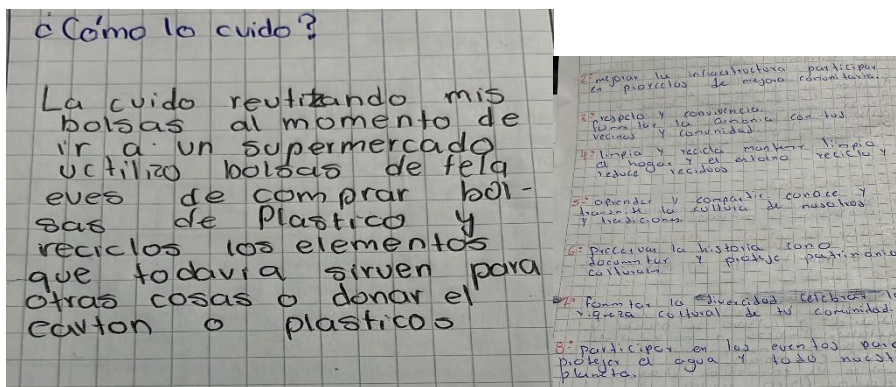 ¿Cómo lo cuido?
La cuido reutilizando mis
bolsas al momento de
ir a un supermercado
uctilizo bolsas de tela
eves de comprar bol-
sas de Plastico y
reciclos los elementos
que todavia sirven para
otras cosas o donar el
carton o plasticos
2: mejorar la infraestructura participar
en proyectos de mejora comunitaria.
3: respeto y convivencia.
la armonia con tus
vecinos y comunidad
4: limpia y recicla mantener limpio
el hogar y el entorno recicla y
reduce
5: aprender y compartir conoce y
la cultura de nosotros
y tradiciones
6: la historia
y patrimonio
7: la divercidad celebrar
riqueza cultural de tu comunidad.
8: participar en los eventos para
el agua y todo
planeta.